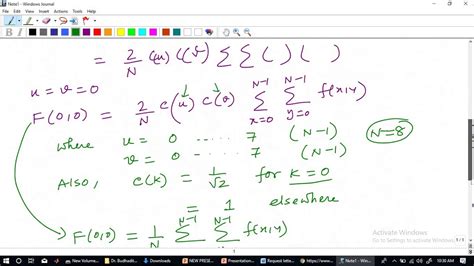 Note1 - Windows Journal
File Edit View Insert Actions Tools Help
= 2/N C(u) C(v) Σ Σ ( ) ( )
u = v = 0
F(0,0) = 2/N C(u) C(v) Σ_{x=0}^{N-1} Σ_{y=0}^{N-1} f(x,y)
where u = 0 ..... 7 (N-1) N=8
v = 0 ..... 7 (N-1)
Also, C(k) = 1/√2 for k = 0
= 1 elsewhere
F(0,0) = 1/N Σ^{N-1} Σ^{N-1} f(x,y)
Activate Windows
Go to Settings to activate Windows.
1 / 1
New Volume... Dr. Budhadit... NEW PRESE... Request letter... https://www... Note1 - Wind... ENG 10:30 AM